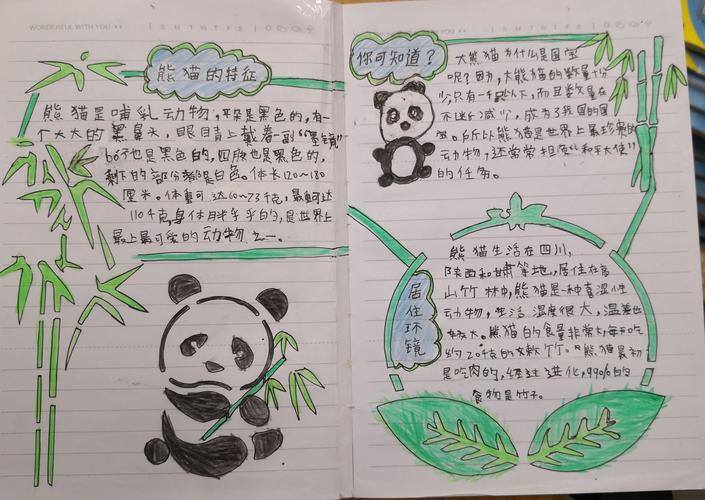 WONDERFUL WITH YOU
熊猫的特征
熊猫是哺乳动物,耳朵是黑色的,有一
个大大的黑鼻头,眼睛上戴着一副“墨镜”
的,四肢也是黑色的,
剩下的部分都是白色。体长120~180
厘米。体重可达60~73千克,最重可达
110千克,身体胖乎乎的,是世界上
最最可爱的动物之一。
你可知道?
大熊猫为什么是国宝
呢?因为大熊猫的数量十分
少,只有一千只以下,而且数量在
不断减少,成为了我国的国
宝。所以熊猫是世界上最珍贵的
动物,还常常担度“和平大使”
的任务。
居住环境
熊猫生活在四川,
陕西和甘肃等地,居住在高
山竹林中,熊猫是一种喜湿性
动物,生活湿度很大,温差也
较大。熊猫的食量非常大,每天吃
约20千克的嫩竹。熊猫最初
是吃肉的,经过进化,99%的
食物是竹子。